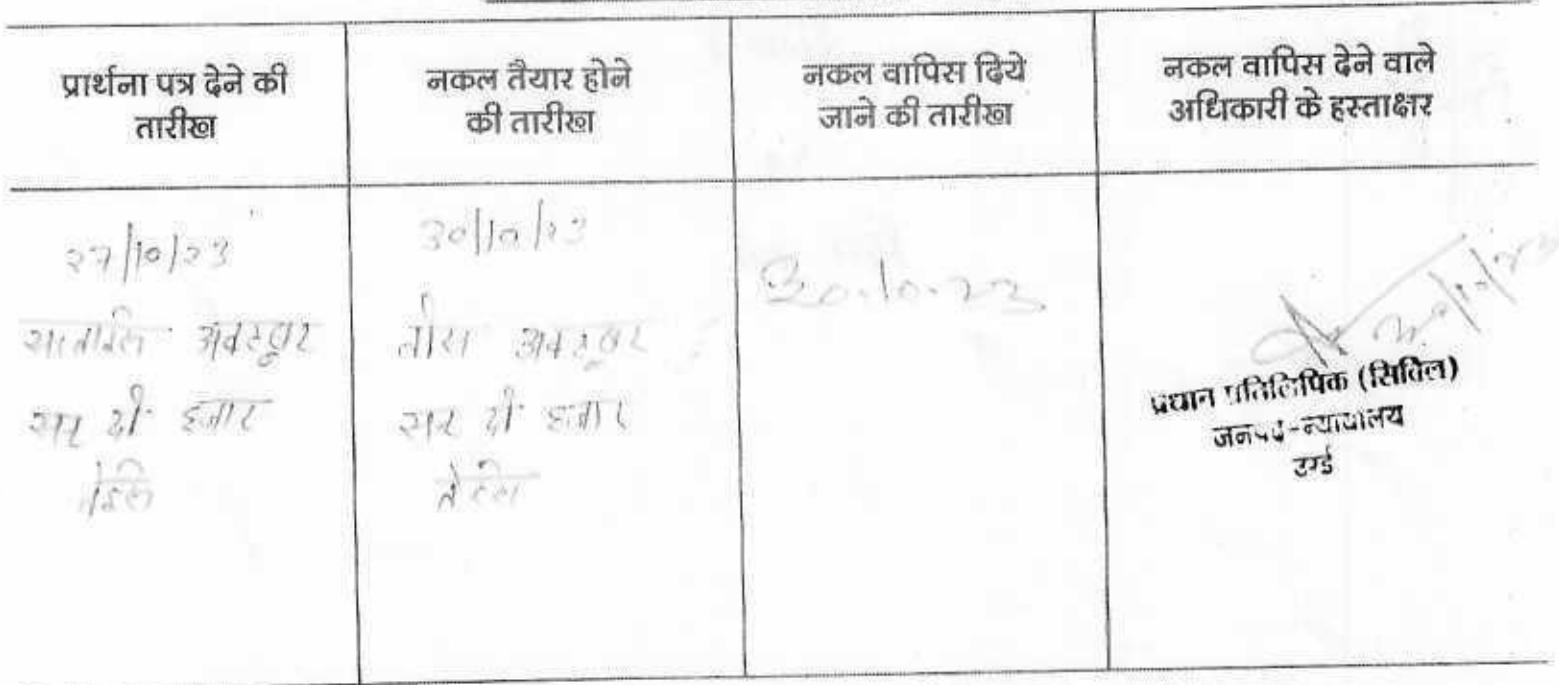 प्रार्थना पत्र देने की
तारीख
नकल तैयार होने
की तारीख
नकल वापिस दिये
जाने की तारीख
नकल वापिस देने वाले
अधिकारी के हस्ताक्षर
२७/१०/२३
सत्ताईस अक्टूबर
सन् दो हजार
तेईस
30/10/23
तीस अक्टूबर
सन् दो हजार
तेईस
30.10.23
प्रधान प्रतिलिपिक (सिविल)
जनपद-न्यायालय